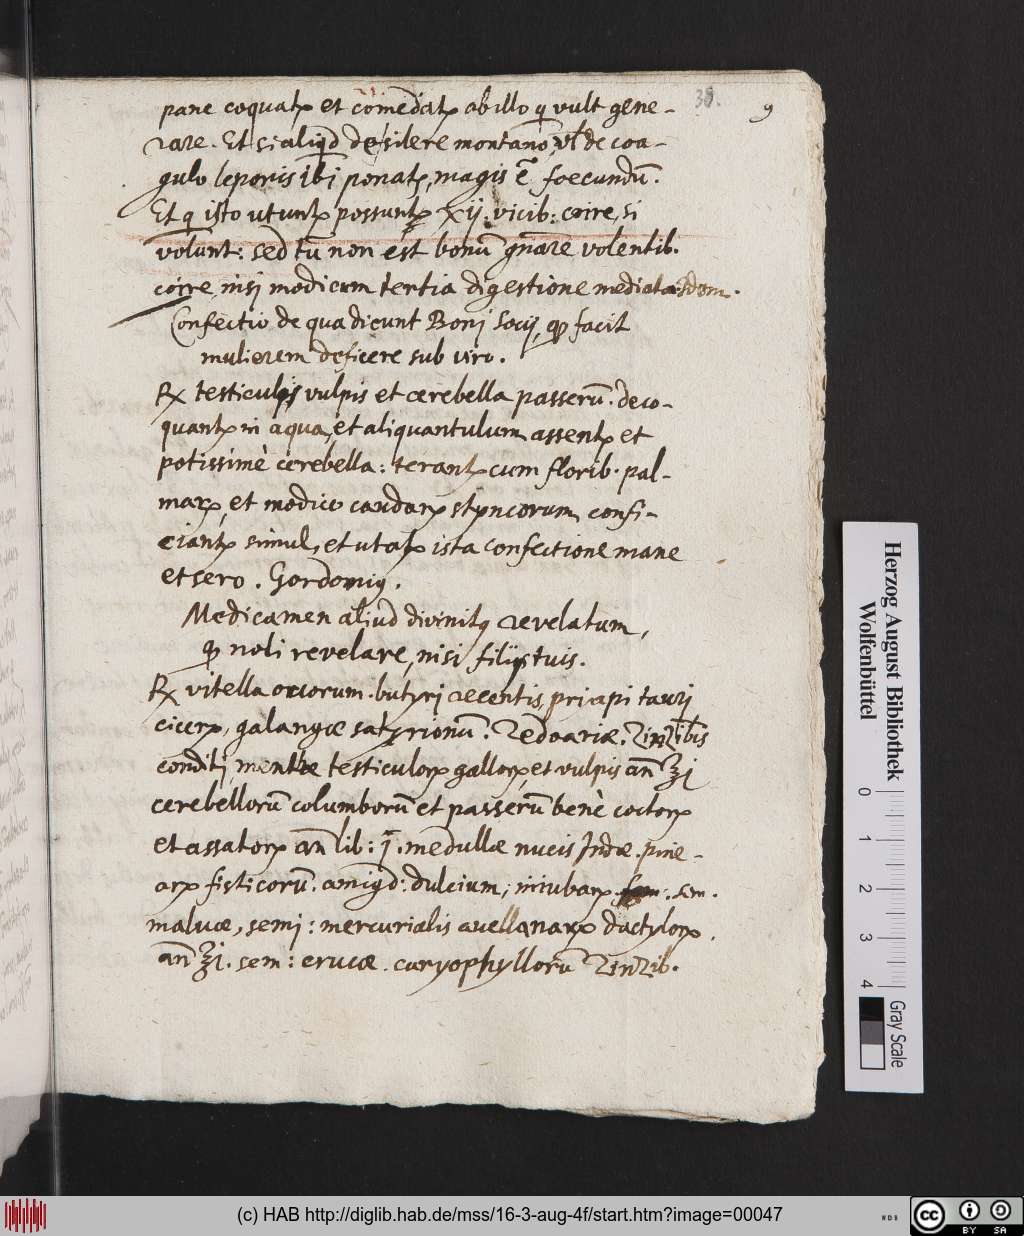 38. 9
pane coquatꝝ et comedatꝝ ab illo q̨ vult gene-
rare. Et si aliqd de silere montano, vl̄ de coa-
gulo leporis ībi ponatꝝ, magis ē foecundū.
Et q̨ isto utuntꝝ possunt xij. vicib: coire, si
volunt: sed tū non est bonū gn̄are volentib.
coire, nisi modicum tertia digestione mediata
Confectio de qua dicunt Boni Socij, ꝙ facit
mulierem deficere sub viro.
℞ testiculos vulpis et cerebella passerū. deco-
quantꝝ in aqua, et aliquantulum assentꝝ et
potissimè cerebella: terantꝝ cum florib. pal-
maꝝ, et modico caudaꝝ styncorum, confi-
ciantꝝ simul, et utatꝝ ista confectione mane
et sero. Gordonius.
Medicamen aliud divinitꝰ revelatum,
ꝙ noli revelare, nisi filijs tuis.
℞ vitella ovorum. butyri recentis, priapi tauri
ciceꝝ, galangæ satyrionū. Zedoariæ. Zinzibris
conditi, menthæ testiculoꝝ galloꝝ, et vulpis an̄ ʒi
cerebellorū columborū et passerū benè coctoꝝ
et assatoꝝ an̄ lib: j. medullæ nucis Indæ. pine-
aꝝ fisticorū. amigd: dulcium, iniubaꝝ. sem.
malvæ, semi: mercurialis avellanaꝝ dactyloꝝ.
an̄ ʒi. sem: erucæ. caryophyllorū Zinzib.
Herzog August Bibliothek
Wolfenbüttel
0 1 2 3 4
Gray Scale
(c) HAB http://diglib.hab.de/mss/16-3-aug-4f/start.htm?image=00047
WDB
cc BY SA